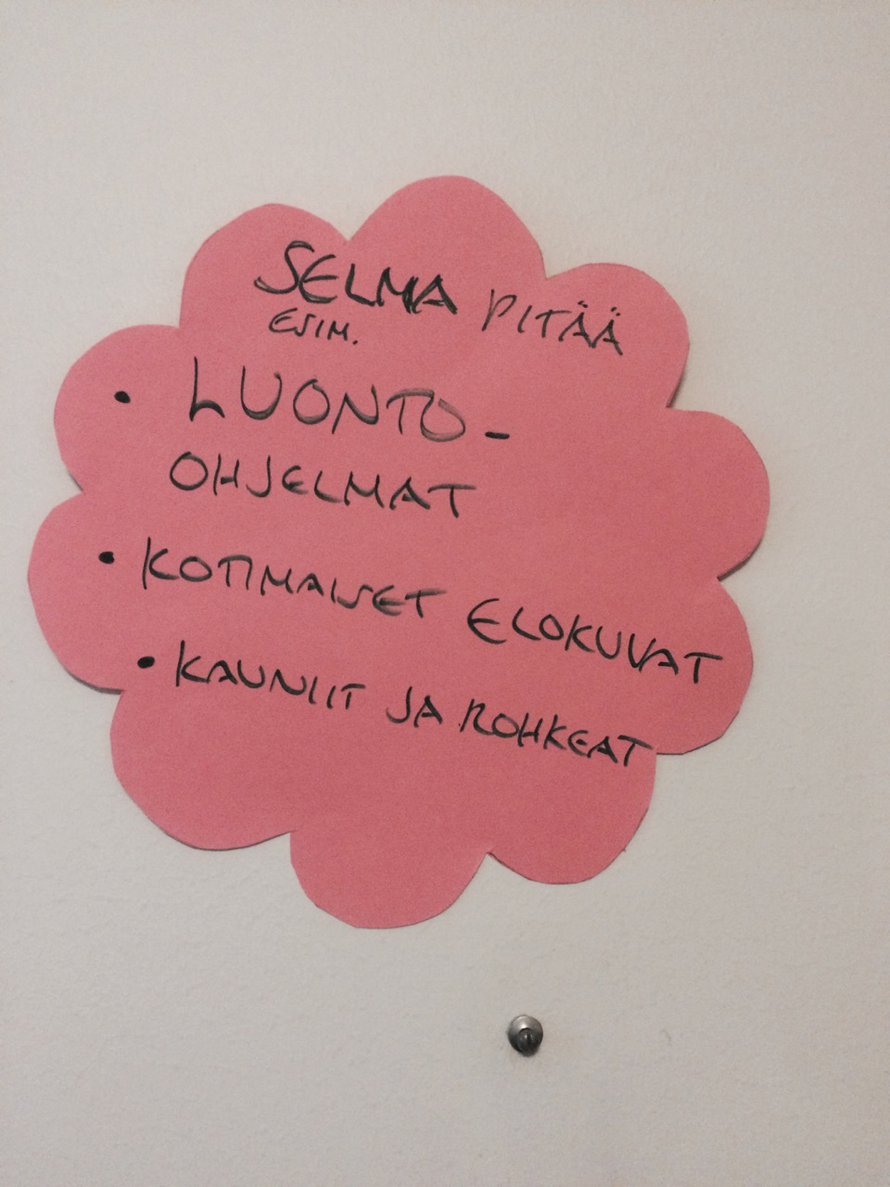 SELMA PITÄÄ
ESIM.
• LUONTO-
OHJELMAT
• KOTIMAISET ELOKUVAT
• KAUNIIT JA ROHKEAT